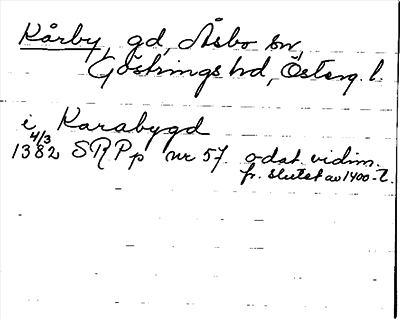 Kårby, gd, Åsbo sn,
Göstrings hd, Österg. l.
i Karabygd
4/3
1382 SRPp nr 57. odat. vidim.
fr. slutet av 1400-t.